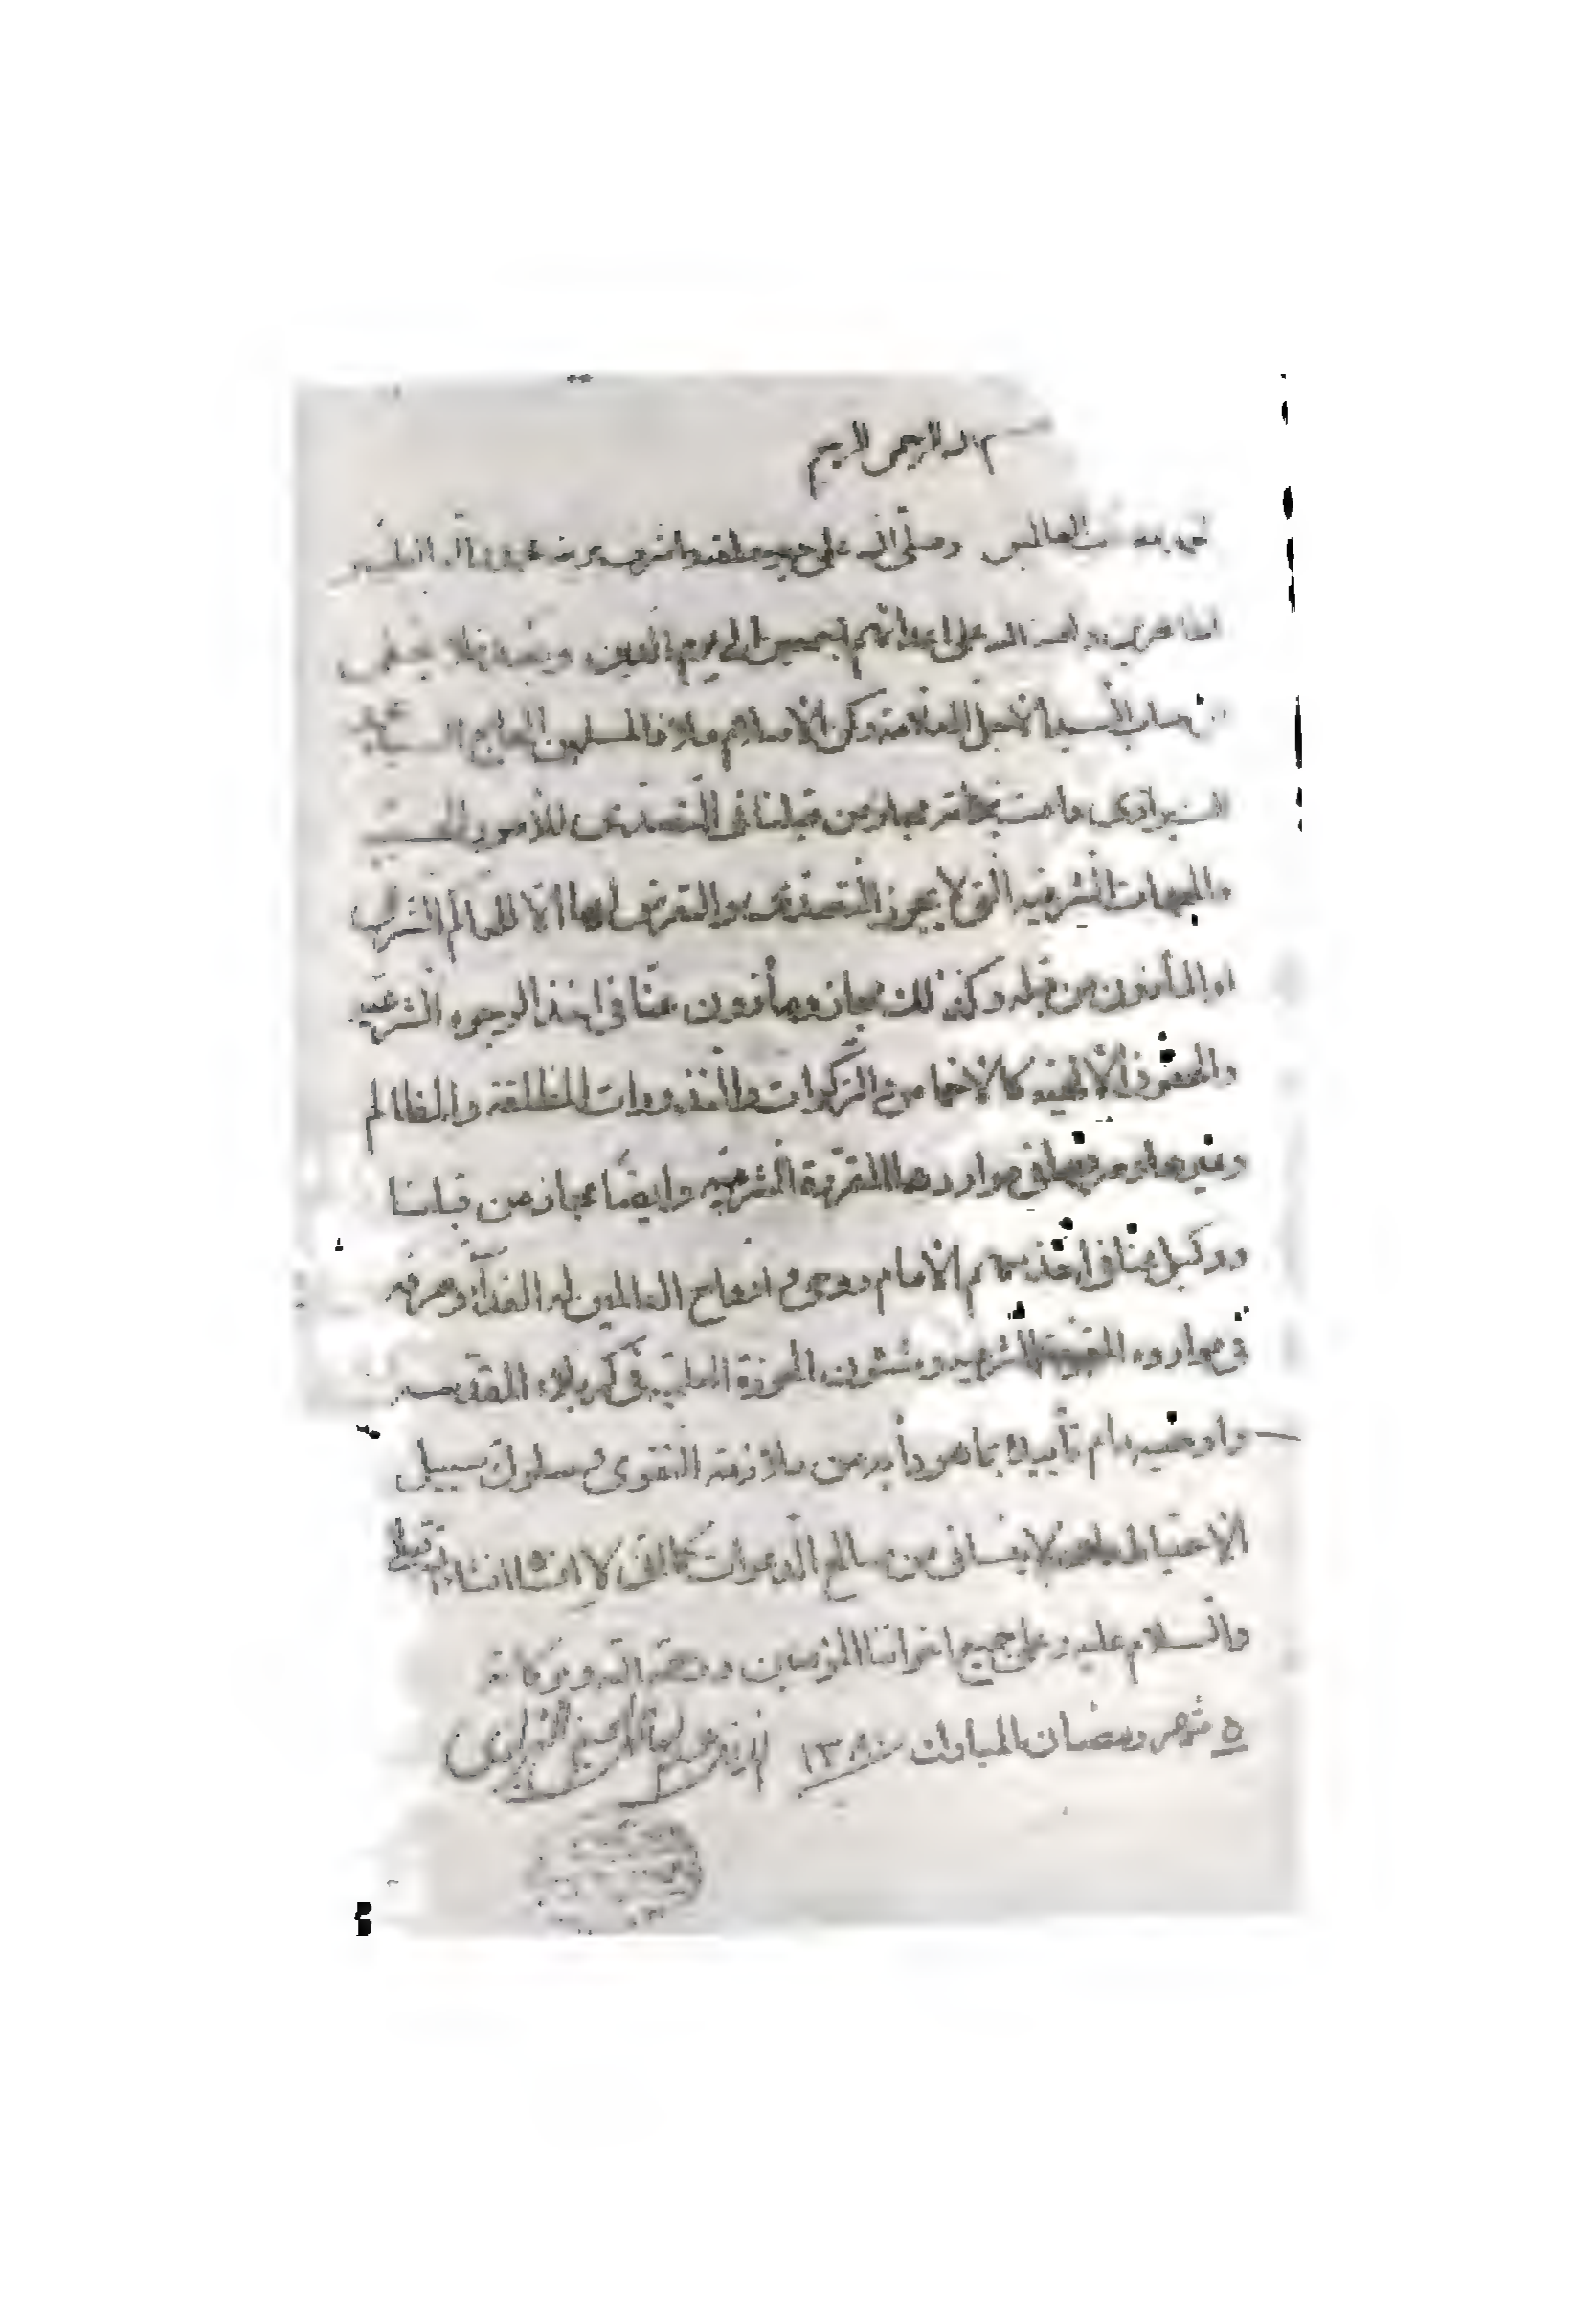 بسم الله الرحمن الرحيم
الحمد لله رب العالمين وصلى الله على خير خلقه واشرف بريته محمد وآله الطيبين
الطاهرين ولعنة الله على اعدائهم اجمعين الى يوم الدين وبعد فلا يخفى
جناب السيد الأجل العلامة ركن الأسلام ملاذ المسلمين الحاج السيد محمد
الشيرازى دامت بركاته مجاز من قبلنا فى التصدى للأمور الحسبية
والجهات الشرعية التي لا يجوز التصدى والتعرض لها الا للحاكم الشرعى
او المأذون من قبله وكذلك مجاز ومأذون عنا في اخذ الوجوه الشرعية
والحقوق الألهية كالأخماس والزكوات والنذورات المطلقة والمظالم
وغيرها وصرفها في مواردها المقررة الشرعية وايضا مجاز من قبلنا
ووكيل عنا في اخذ سهم الأمام روحى وارواح العالمين له الفداء وصرفه
في موارده الشرعية وشئون الحوزة العلمية في كربلاء المقدسة
واوصيه دام تأييده بما هو دأبه من ملازمة التقوى وسلوك سبيل
الأحتياط وان لا ينسانى من صالح الدعوات كما انى لا انساه انشاء الله تعالى
والسلام عليه وعلى جميع اخواننا المؤمنين ورحمة الله وبركاته
٥ شهر رمضان المبارك ١٣٨٠ الشيرازى